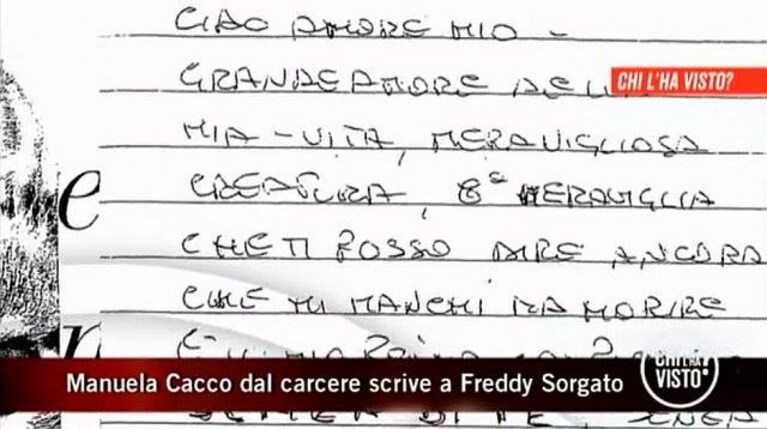 CIAO AMORE MIO -
GRANDE AMORE DELLA
CHI L'HA VISTO?
MIA - VITA, MERAVIGLIOSA
e
CREATURA, 8ª MERAVIGLIA
CHE TI POSSO DIRE ANCORA
CHE MI MANCHI DA MORIRE
Manuela Cacco dal carcere scrive a Freddy Sorgato
CHI L'HA VISTO?